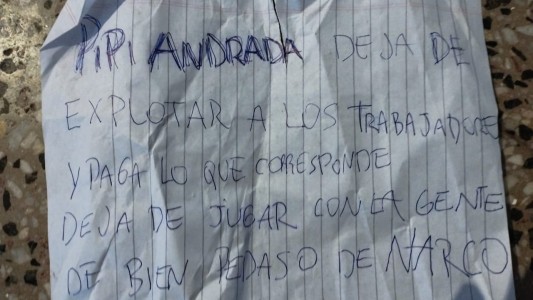 PiPi ANDRADA DEJA DE
EXPLOTAR A LOS TRABAJADORES
Y PAGA LO QUE CORRESPONDE
DEJA DE JUGAR CON LA GENTE
DE BIEN PEDASO DE NARCO